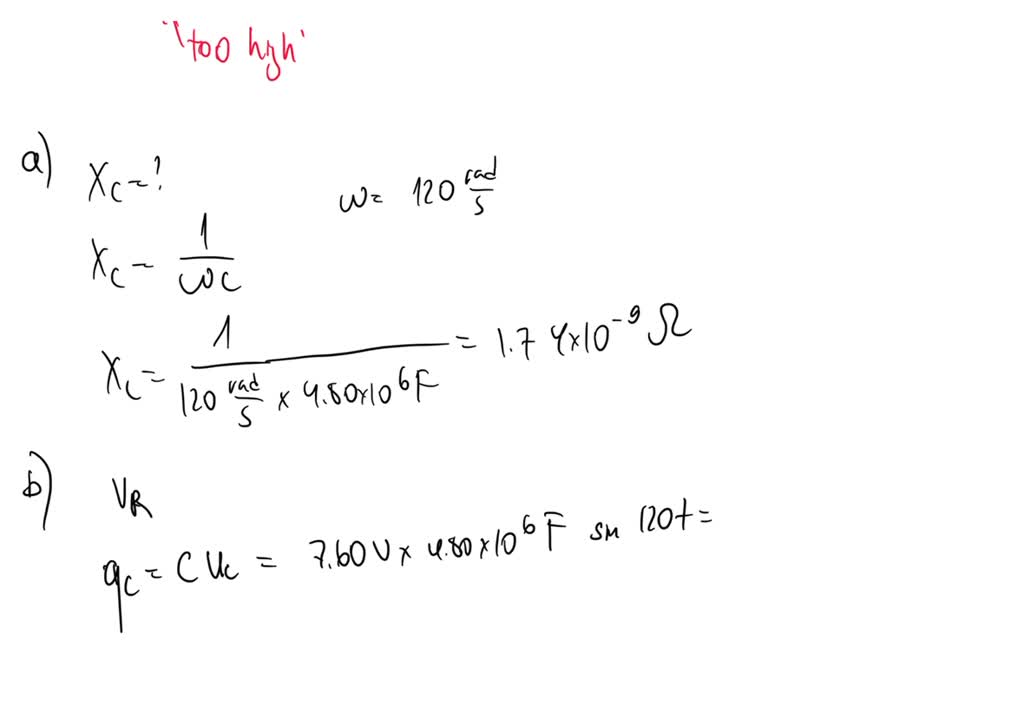 "too high"
a) Xc = ?
ω = 120 rad/s
Xc = 1/ωC
Xc = 1/(120 rad/s × 4.80×10^6 F) = 1.74×10^-9 Ω
b) VR
qc = C Uc = 7.60V × 4.80×10^6 F sin 120t =